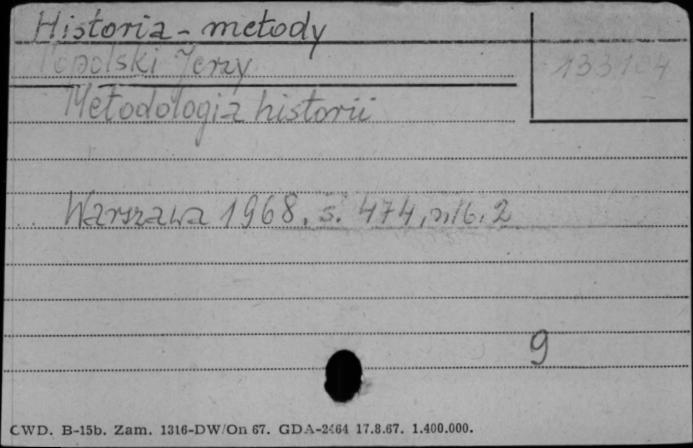 Historia - metody
Topolski Jerzy
133104
Metodologia historii
Warszawa 1968, s. 474, nlb. 2
9
CWD. B-15b. Zam. 1316-DW/On 67. GDA-2464 17.8.67. 1.400.000.